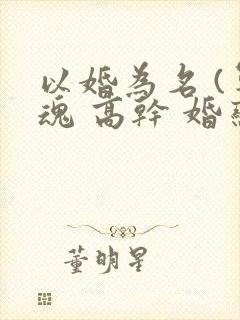 以婚為名(
魂 高幹 婚
董明星